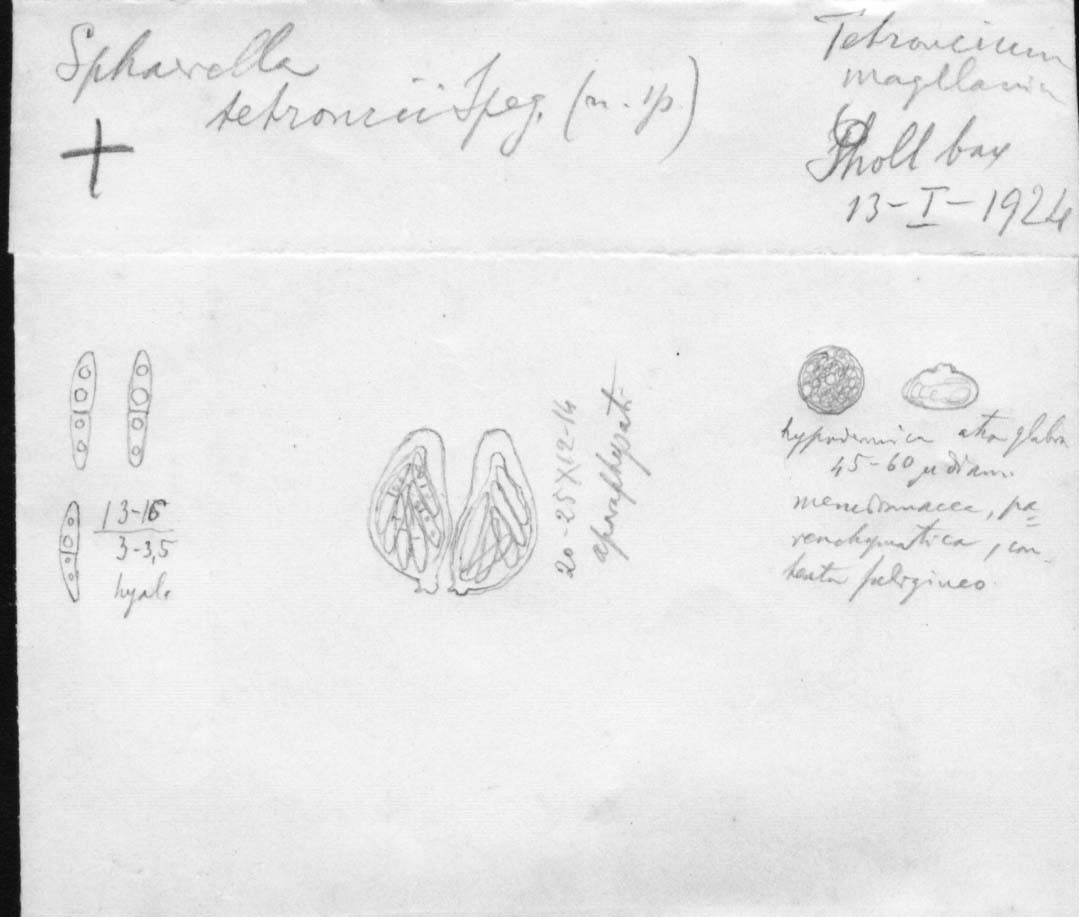 Sphaerella
tetroncii Speg. (n. sp.)
+
Tetroncium
magellanicum
Sholl bay
13-I-1924
13-16
3-3,5
hyal.
20-25X12-14
aparaphysati
hypodermica atra glabra
45-60 µ diam.
membranacea, pa=
renchymatica, con-
textu fuligineo